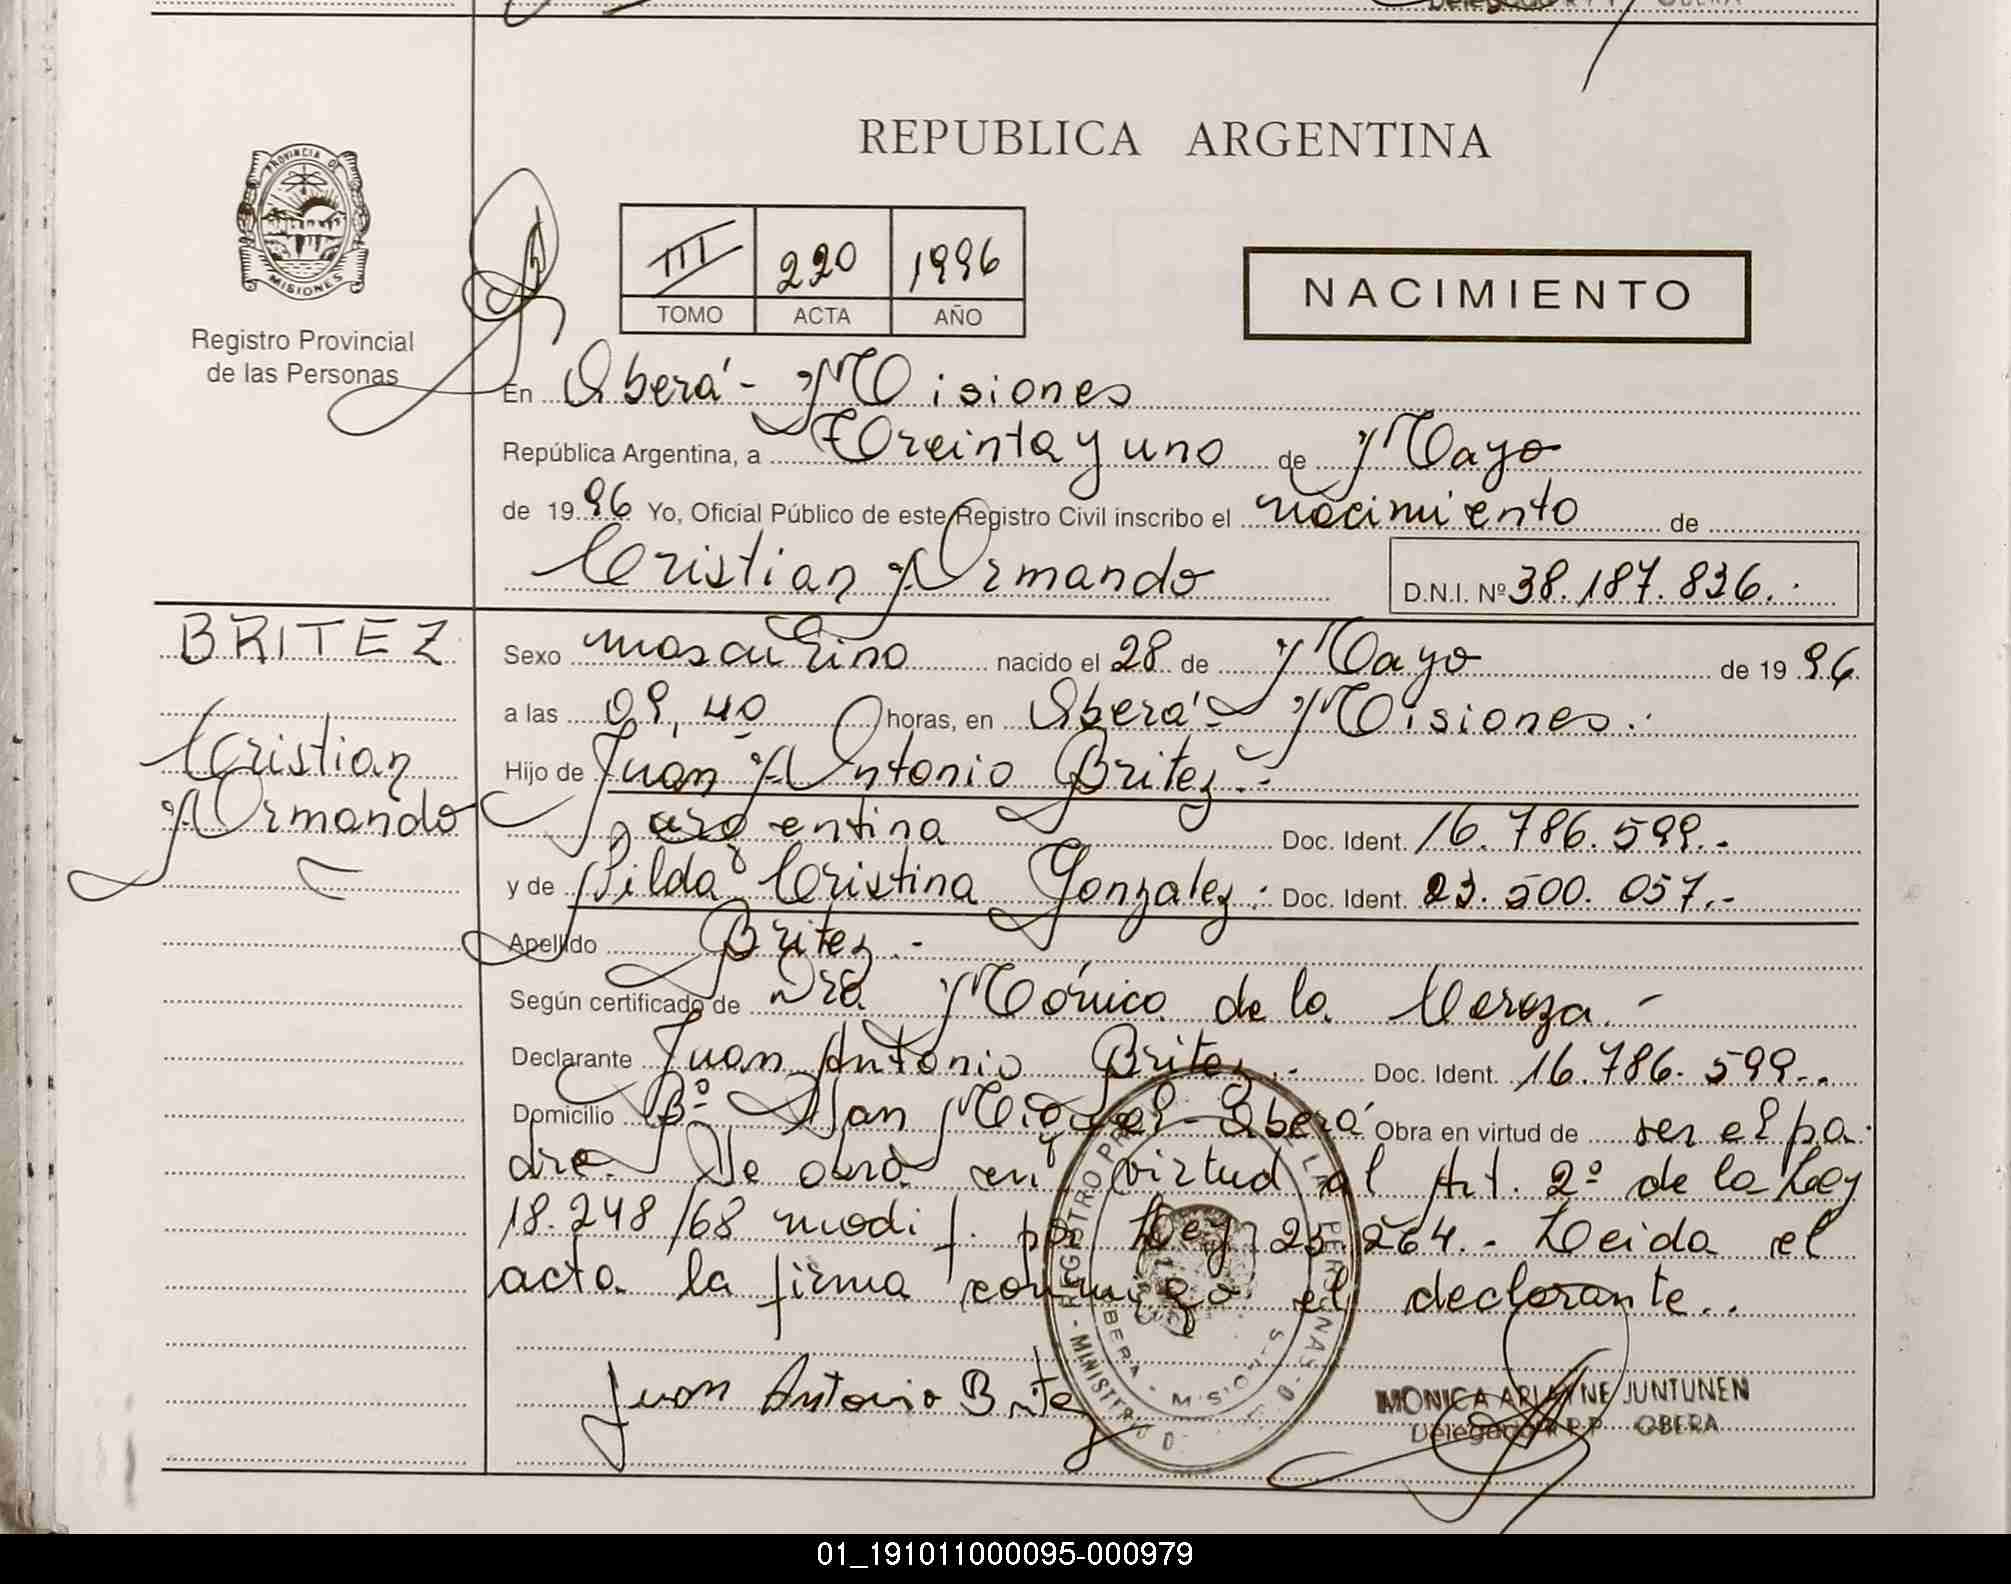 REPUBLICA ARGENTINA
PROVINCIA DE
MISIONES
Registro Provincial
de las Personas
III 220 1996
TOMO ACTA AÑO
NACIMIENTO
En Oberá - Misiones
República Argentina, a Treinta y uno de Mayo
de 1996 Yo, Oficial Público de este Registro Civil inscribo el nacimiento de
Cristian Armando D.N.I. Nº 38.187.836.
BRITEZ
Cristian
Armando
Sexo masculino nacido el 28 de Mayo de 1996
a las 09,40 horas, en Oberá - Misiones.
Hijo de Juan Antonio Britez.-
argentina Doc. Ident. 16.786.599.-
y de Silda Cristina Gonzalez: Doc. Ident. 23.500.057.-
Apellido Britez.-
Según certificado de Dra Mónica de la
Declarante Juan Antonio Britez.- Doc. Ident. 16.786.599..
Domicilio Bº San Miguel - Oberá Obra en virtud de ser el pa-
dre. Se obra en virtud al Art. 2º de la Ley
18.248/68 modif. por Ley 23.264.- Leida el
acta la firma conmigo el declarante..
Juan Antonio Britez
MONICA ARIADNE JUNTUNEN
Delegado R.P.P. OBERA
01_191011000095-000979